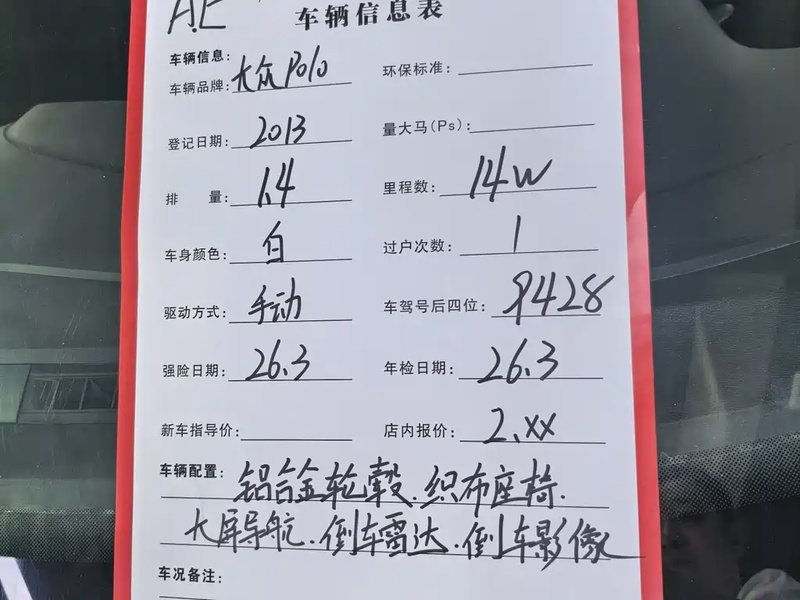 车辆信息表
车辆信息:
车辆品牌: 大众Polo 环保标准:
登记日期: 2013 量大马(Ps):
排 量: 1.4 里程数: 14W
车身颜色: 白 过户次数: 1
驱动方式: 手动 车驾号后四位: 9428
强险日期: 26.3 年检日期: 26.3
新车指导价: 店内报价: 2.xx
车辆配置: 铝合金轮毂.织布座椅.
大屏导航.倒车雷达.倒车影像
车况备注: